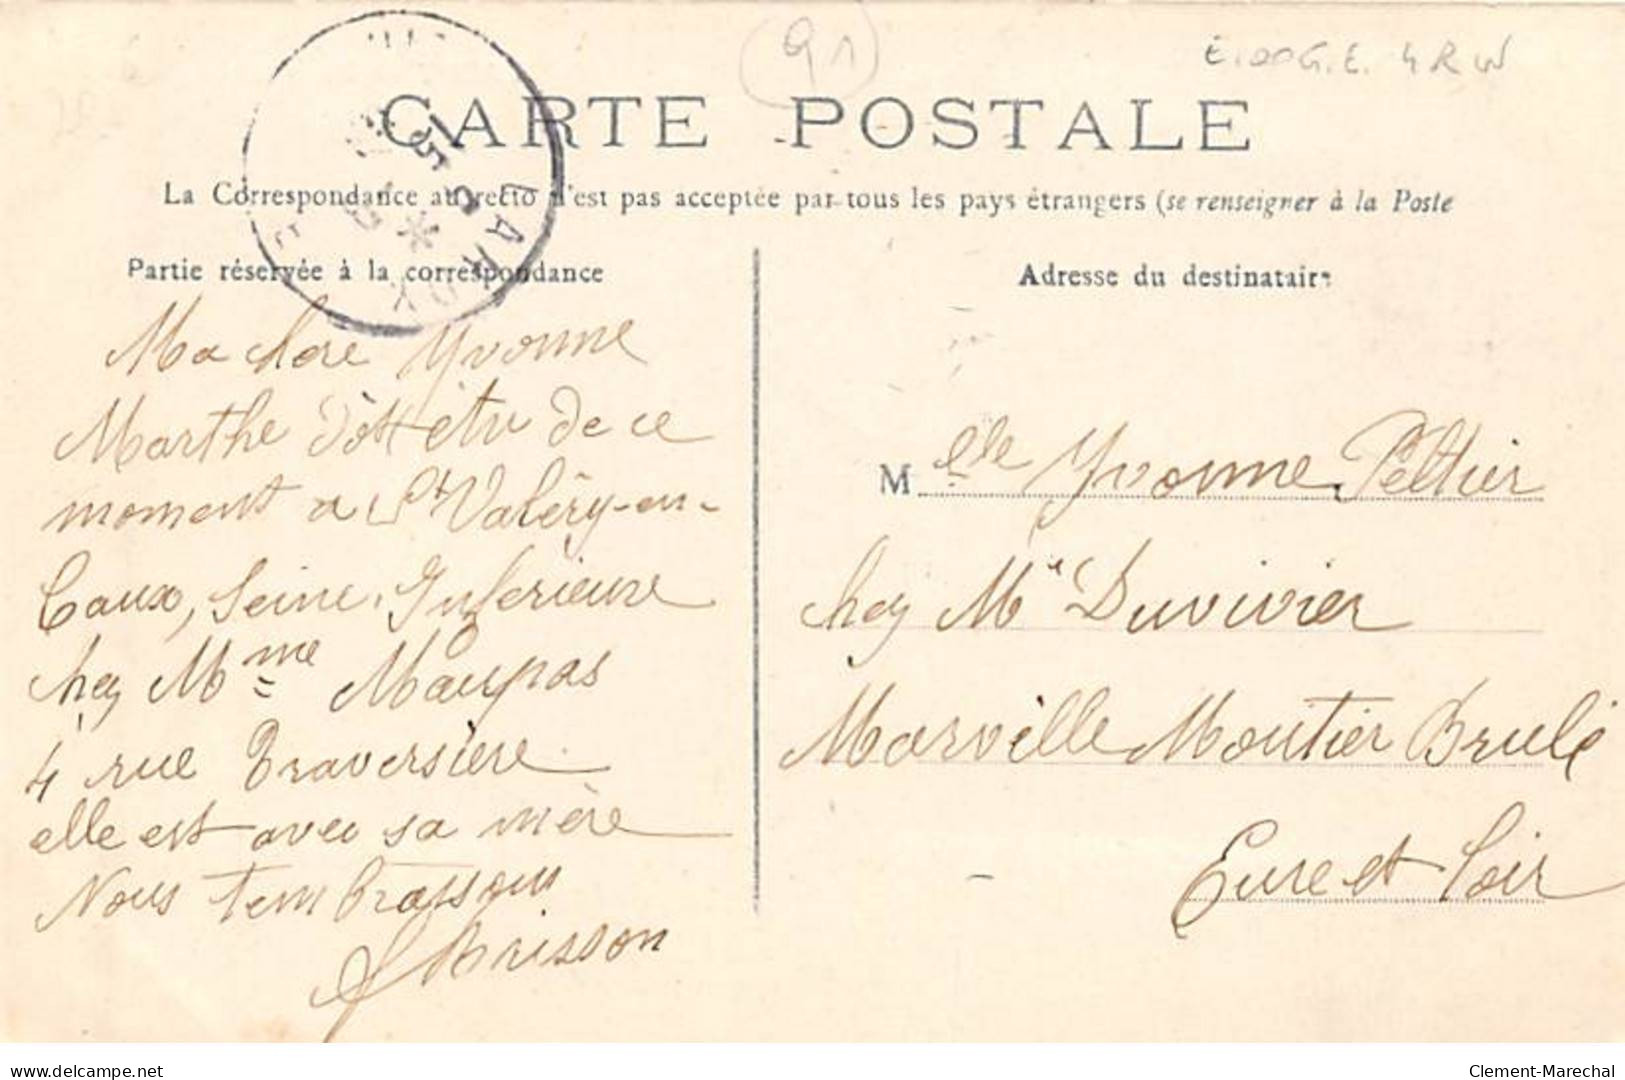 91
CARTE POSTALE
La Correspondance au recto n'est pas acceptée par tous les pays étrangers (se renseigner à la Poste
Partie réservée à la correspondance
Ma chere Yvonne
Marthe
de ce
moment a St Valéry-en-
Caux, Seine. Inferieure
chez Mme Maupas
4 rue Traversière.
elle est avec sa mère
Nous tembrassons
Brisson
Adresse du destinataire
Melle Yvonne Peltier
chez Mr Duvivier
Marville Moutier Brulé
Eure et Loir
www.delcampe.net
Clement-Marechal